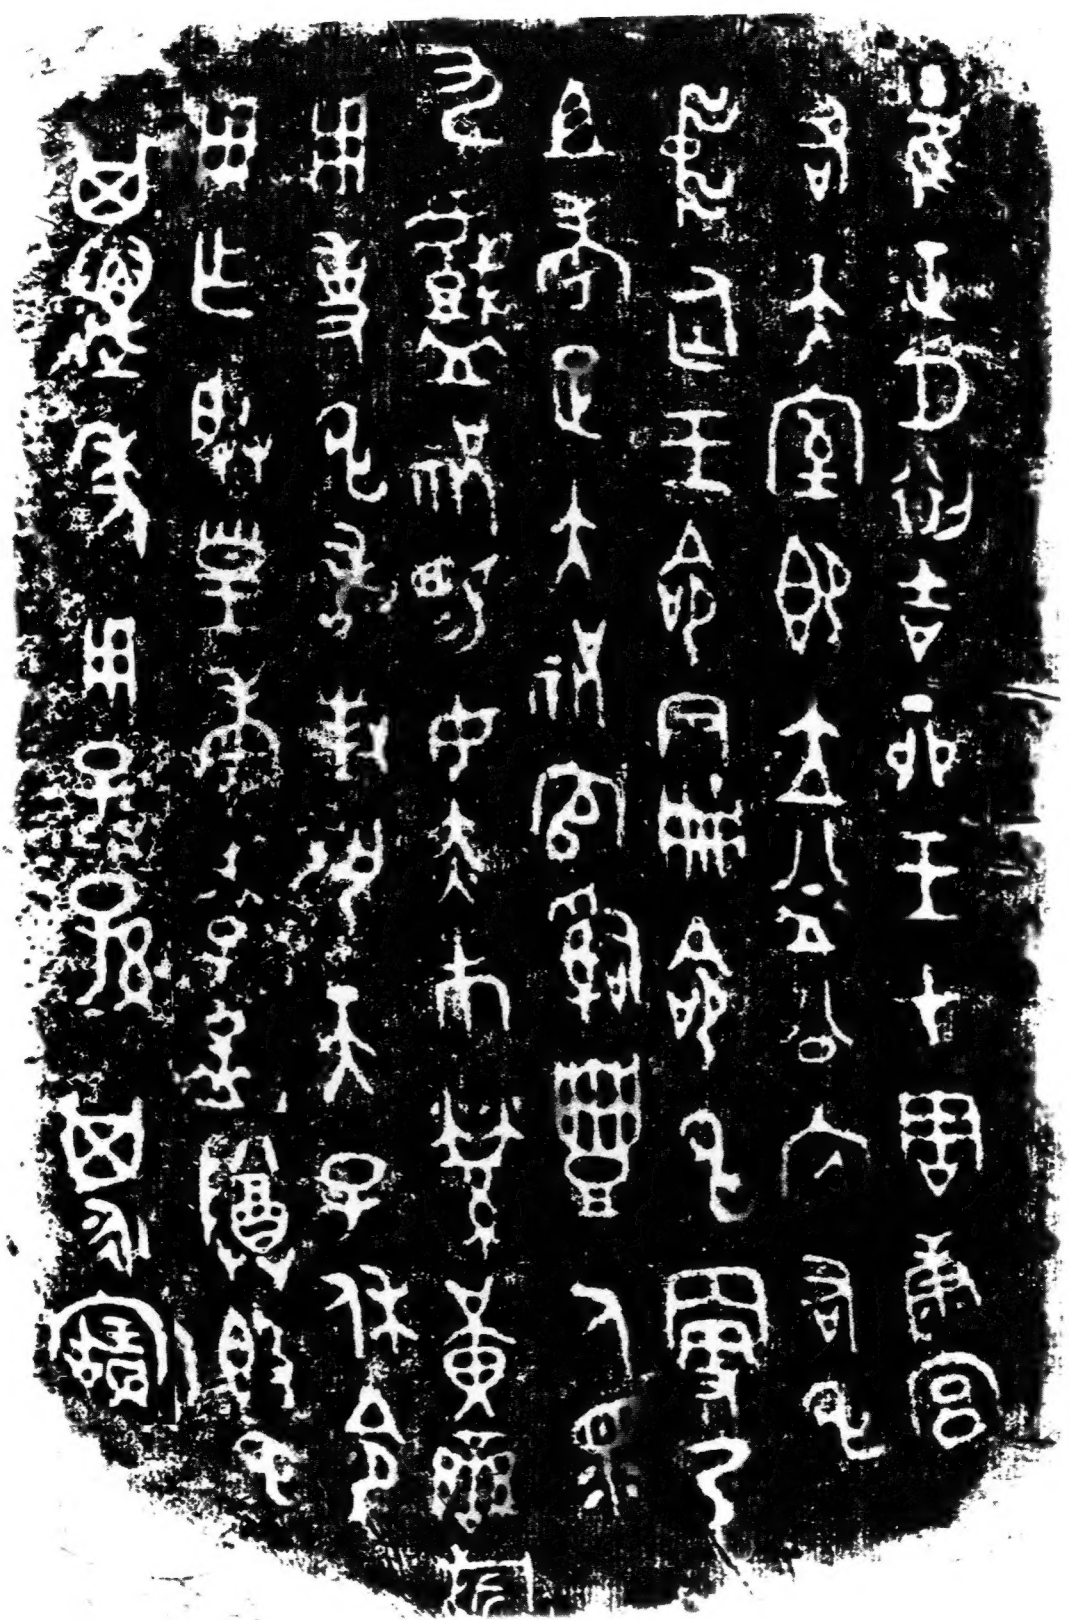 隹正月初吉丁卯王才周康宮
各大室即立益公內右申
中廷王命尹冊命申更乃
且考疋大祝官𤔲豐人眔
九盩祝易女赤巿縈黃䜌旂
用事申敢對揚天子休令
用乍朕皇考孝孟尊簋申
其邁年用子子孫孫其永寶